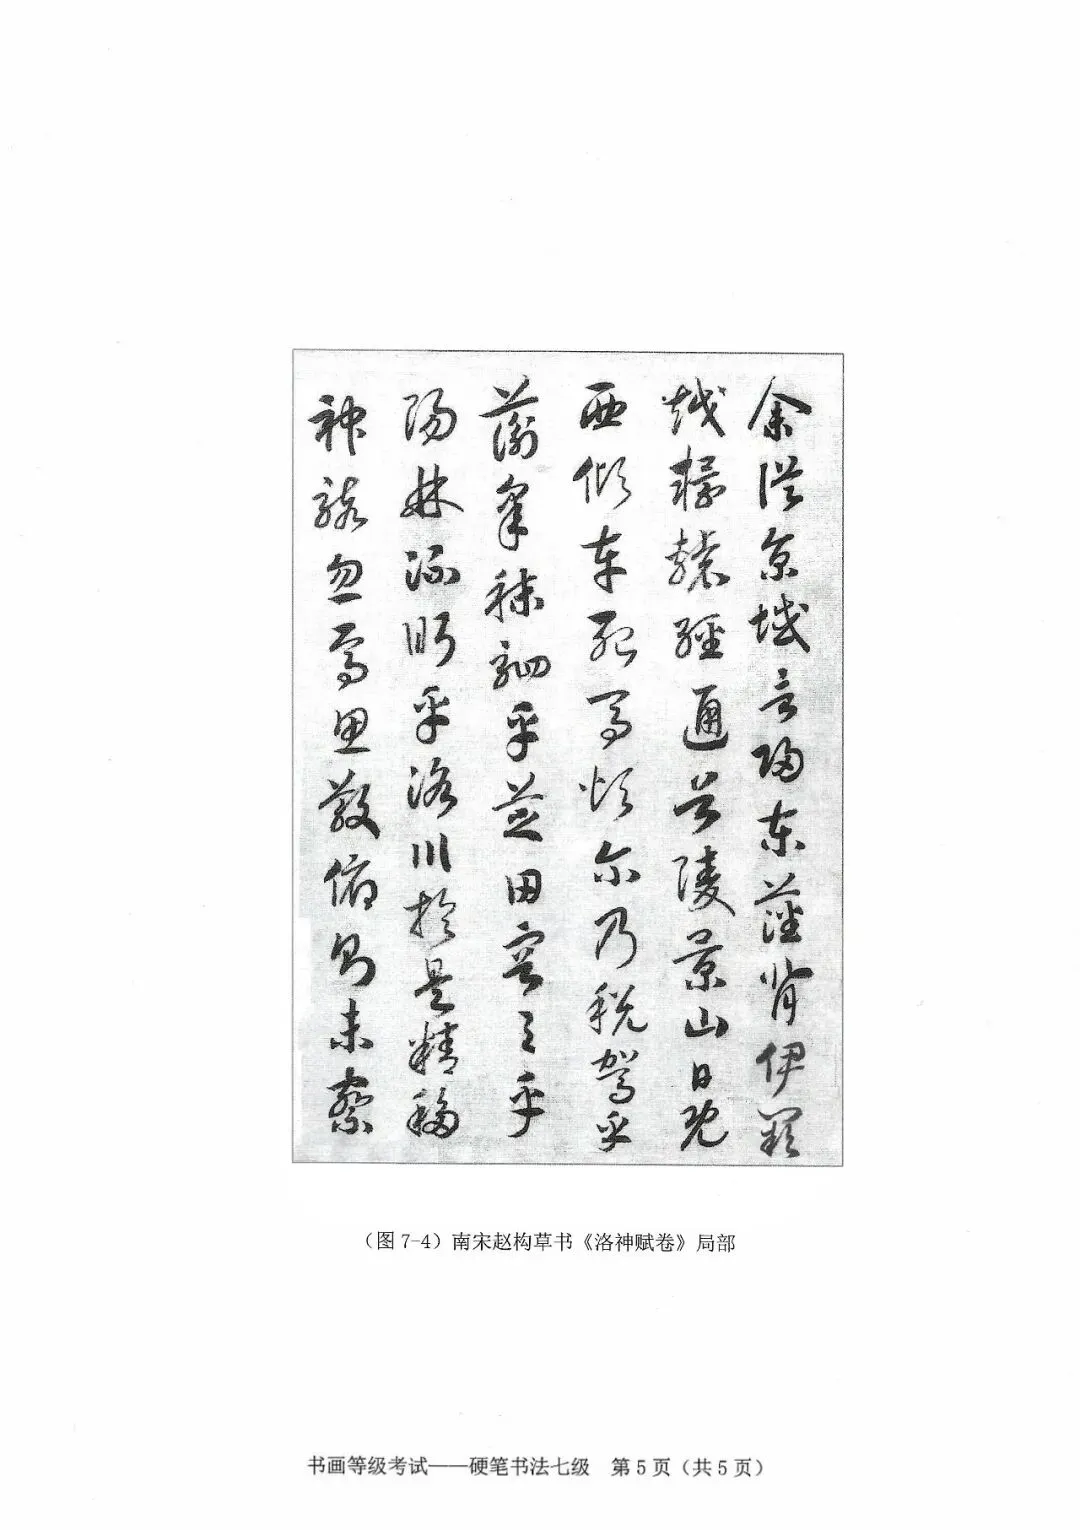 余從京域言歸東藩背伊闕
越轘轅經通谷陵景山日既
西傾車殆馬煩尔乃税駕乎
蘅皋秣駟乎芝田容与乎
陽林流眄乎洛川於是精移
神駭忽焉思散俯則未察
（图 7-4）南宋赵构草书《洛神赋卷》局部
书画等级考试——硬笔书法七级 第 5 页（共 5 页）